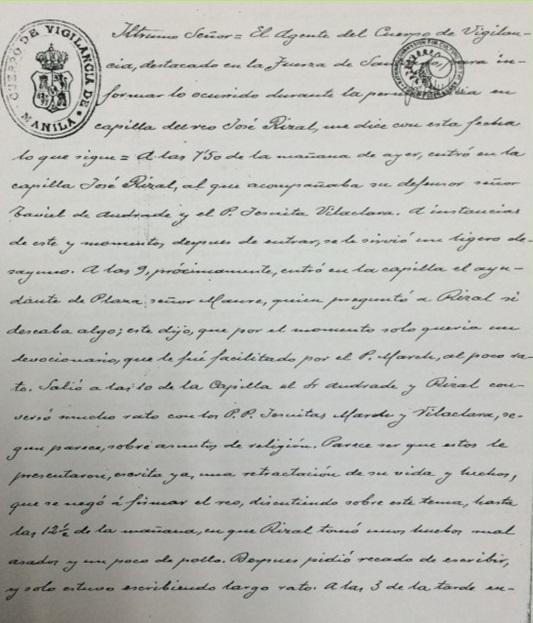 CUERPO DE VIGILANCIA DE MANILA
Iltrmo Señor= El Agente del Cuerpo de Vigilan-
cia, destacado en la Fuerza de in-
formar lo ocurrido durante la en
capilla del reo José Rizal, me dice con esta fecha
lo que sigue= A las 7'50 de la mañana de ayer, entró en la
capilla José Rizal, al que acompañaba su defensor señor
Taviel de Andrade y el P. Jesuita Vilaclara. A instancias
de este y momentos despues de entrar, se le sirvió un ligero de-
sayuno. A las 9, próximamente, entró en la capilla el ayu-
dante de Plaza, señor Maure, quien preguntó a Rizal si
deseaba algo; este dijo, que por el momento solo queria un
devocionario, que le fué facilitado por el P. March, al poco ra-
to. Salió a las 10 de la Capilla el Sr Andrade y Rizal con-
versó mucho rato con los P.P. Jesuitas March y Vilaclara, se-
gun parece, sobre asuntos de religión. Parece ser que estos le
presentaron, escrita ya, una retractación de su vida y hechos,
que se negó á firmar el reo, discutiendo sobre este tema, hasta
las 12½ de la mañana, en que Rizal tomó unos huebos mal
asados y un poco de pollo. Despues pidió recado de escribir,
y solo estuvo escribiendo largo rato. A las 3 de la tarde en-